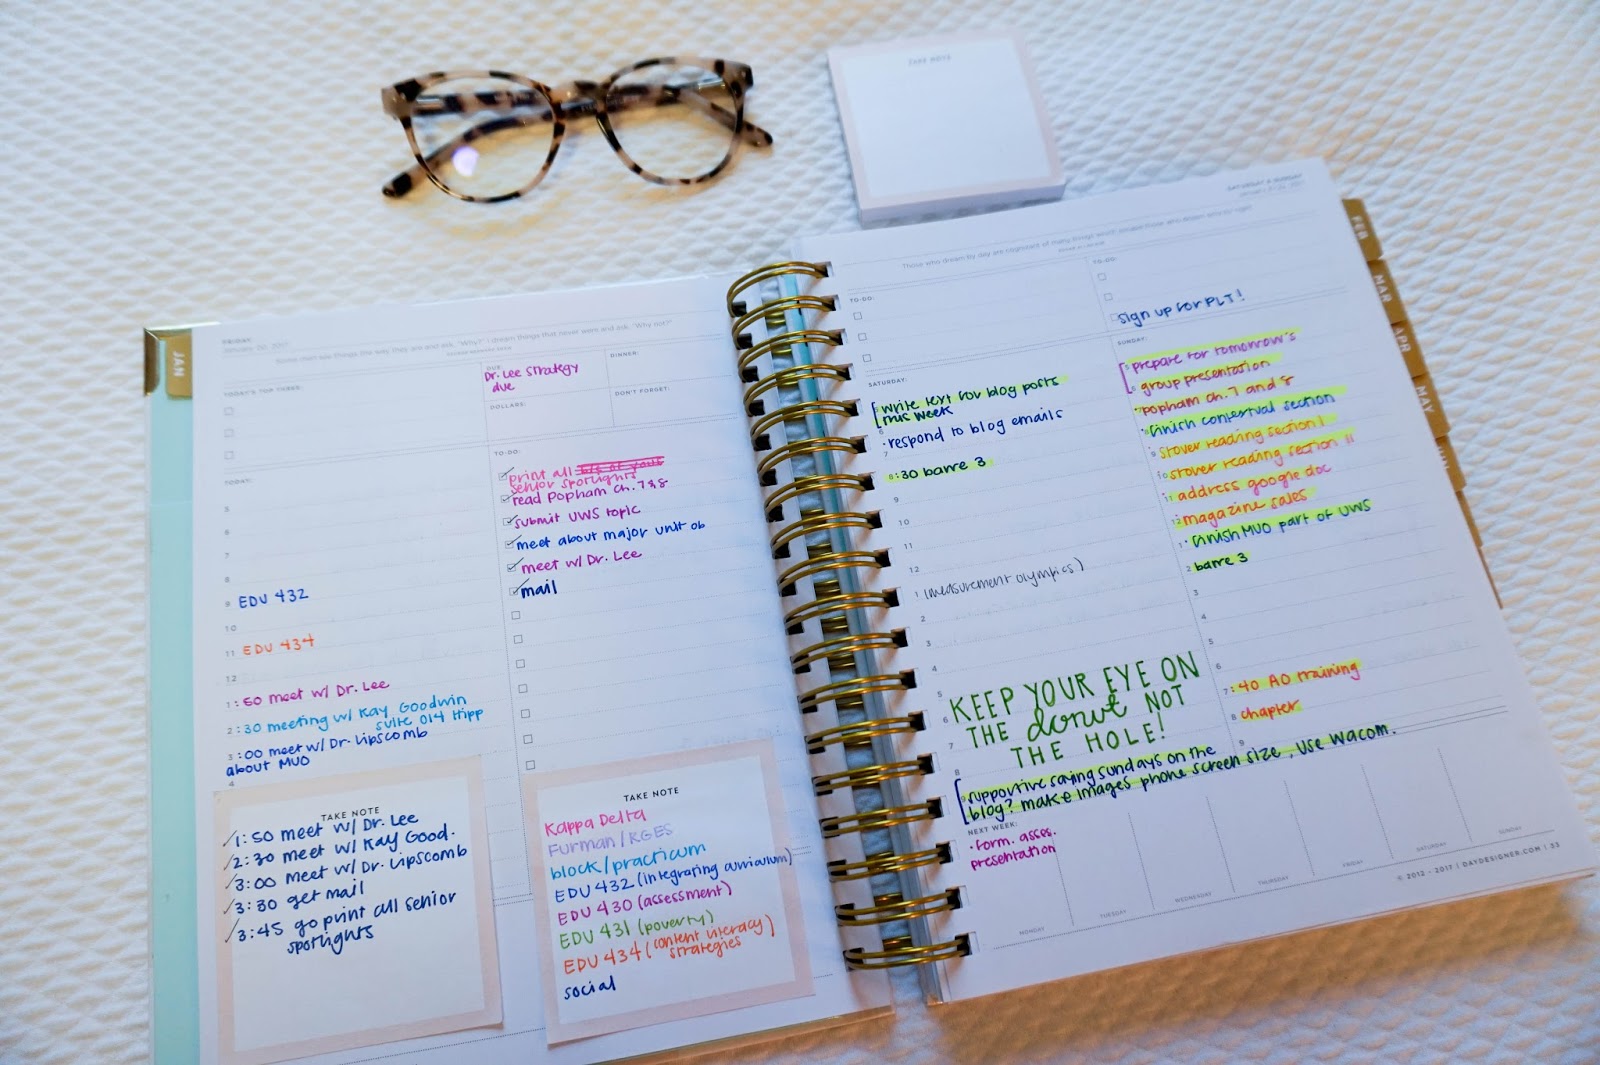 TAKE NOTE
JAN
FRIDAY
January 20, 2017
Some men see things the way they are and ask, "Why?" I dream things that never were and ask, "Why not?"
TODAY'S TOP THREE:
DUE:
Dr. Lee strategy
due
DINNER:
DOLLARS:
DON'T FORGET:
TODAY:
5
6
7
8
9 EDU 432
10
11 EDU 434
12
1:50 meet w/ Dr. Lee
2:30 meeting w/ Kay Goodwin
suite 014 Hipp
3:00 meet w/ Dr. Lipscomb
about MUO
4
TO-DO:
print all
senior spotlights
read Popham ch. 7 & 8
submit UWS topic
meet about major unit ob
meet w/ Dr. Lee
mail
TAKE NOTE
1:50 meet w/ Dr. Lee
2:30 meet w/ Kay Good.
3:00 meet w/ Dr. Lipscomb
3:30 get mail
3:45 go print all senior
spotlights
TAKE NOTE
Kappa Delta
Furman/RGES
block/practicum
EDU 432 (integrating curriculum)
EDU 430 (assessment)
EDU 431 (poverty)
EDU 434 (content literacy)
strategies
social
SATURDAY & SUNDAY
Those who dream by day are cognizant of many things which escape those who dream only by night.
TO-DO:
TO-DO:
sign up for PLT!
SATURDAY:
write text for blog posts
this week
6
· respond to blog emails
7
8:30 barre 3
9
10
11
12
1 (measurement olympics)
2
3
4
5
6
7
8
KEEP YOUR EYE ON
THE donut NOT
THE HOLE!
supportive saying sundays on the
blog? make images phone screen size, use Wacom.
SUNDAY:
prepare for tomorrow's
group presentation
popham ch. 7 and 8
finish contextual section
9 stover reading section I
10 stover reading section II
11 address google doc
12 magazine sales
1 · finish MUO part of UWS
2 barre 3
3
4
5
6
7:40 AO training
8 chapter
9
NEXT WEEK:
· form. asses.
presentation
MONDAY
TUESDAY
WEDNESDAY
THURSDAY
FRIDAY
SATURDAY
SUNDAY
© 2012 - 2017 | DAYDESIGNER.COM | 33
FEB
MAR
APR
MAY